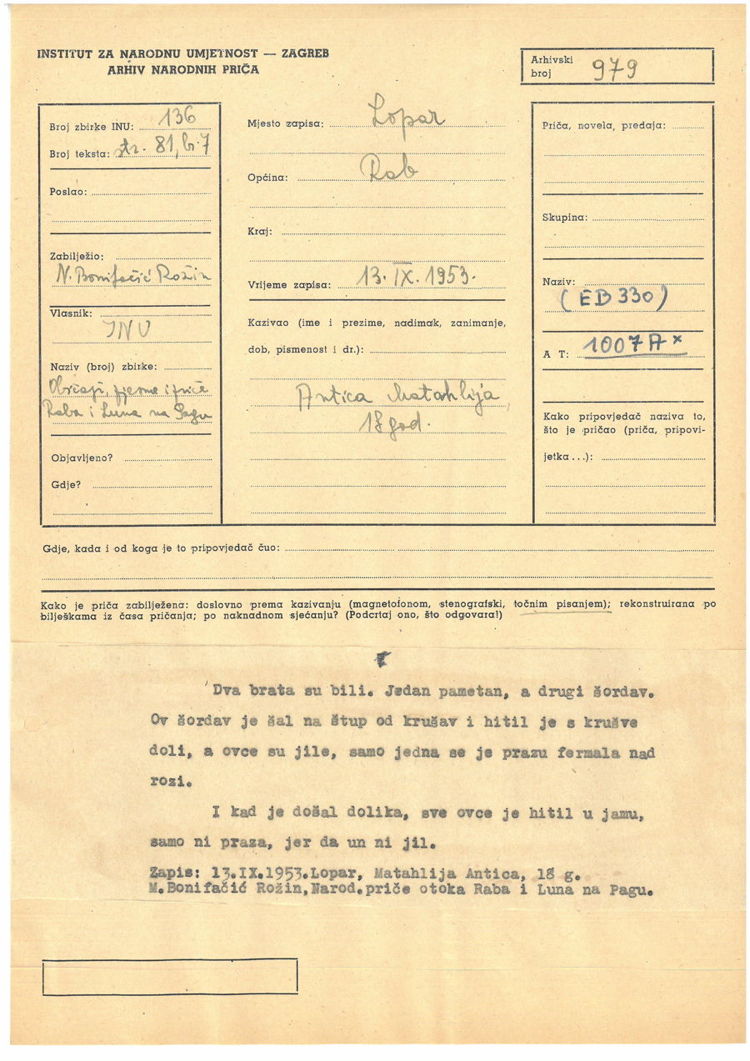 INSTITUT ZA NARODNU UMJETNOST — ZAGREB
ARHIV NARODNIH PRIČA
Arhivski
broj 979
Broj zbirke INU: 136
Broj teksta: str. 81, br. 7
Poslao:
Zabilježio:
N. Bonifačić Rožin
Vlasnik:
INU
Naziv (broj) zbirke:
Običaji, pjesme i priče
Raba i Luna na Pagu
Objavljeno?
Gdje?
Mjesto zapisa: Lopar
Općina: Rab
Kraj:
Vrijeme zapisa: 13. IX. 1953.
Kazivao (ime i prezime, nadimak, zanimanje,
dob, pismenost i dr.):
Antica Matahlija,
18 god.
Priča, novela, predaja:
Skupina:
Naziv:
(EB 330)
A T: 1007 A*
Kako pripovjedač naziva to,
što je pričao (priča, pripovi-
jetka...):
Gdje, kada i od koga je to pripovjedač čuo:
Kako je priča zabilježena: doslovno prema kazivanju (magnetofonom, stenografski, točnim pisanjem); rekonstruirana po
bilješkama iz časa pričanja; po naknadnom sjećanju? (Podcrtaj ono, što odgovara!)
Dva brata su bili. Jedan pametan, a drugi šordav.
Ov šordav je šal na štup od krušav i hitil je s krušve
doli, a ovce su jile, samo jedna se je prazu fermala nad
rozi.
I kad je došal dolika, sve ovce je hitil u jamu,
samo ni praza, jer da un ni jil.
Zapis: 13.IX.1953.Lopar, Matahlija Antica, 18 g.
M.Bonifačić Rožin,Narod.priče otoka Raba i Luna na Pagu.